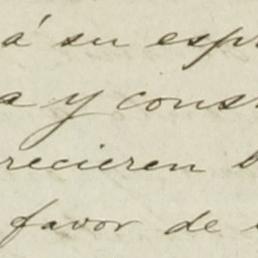 á su esp
a y cons
recieren
favor de